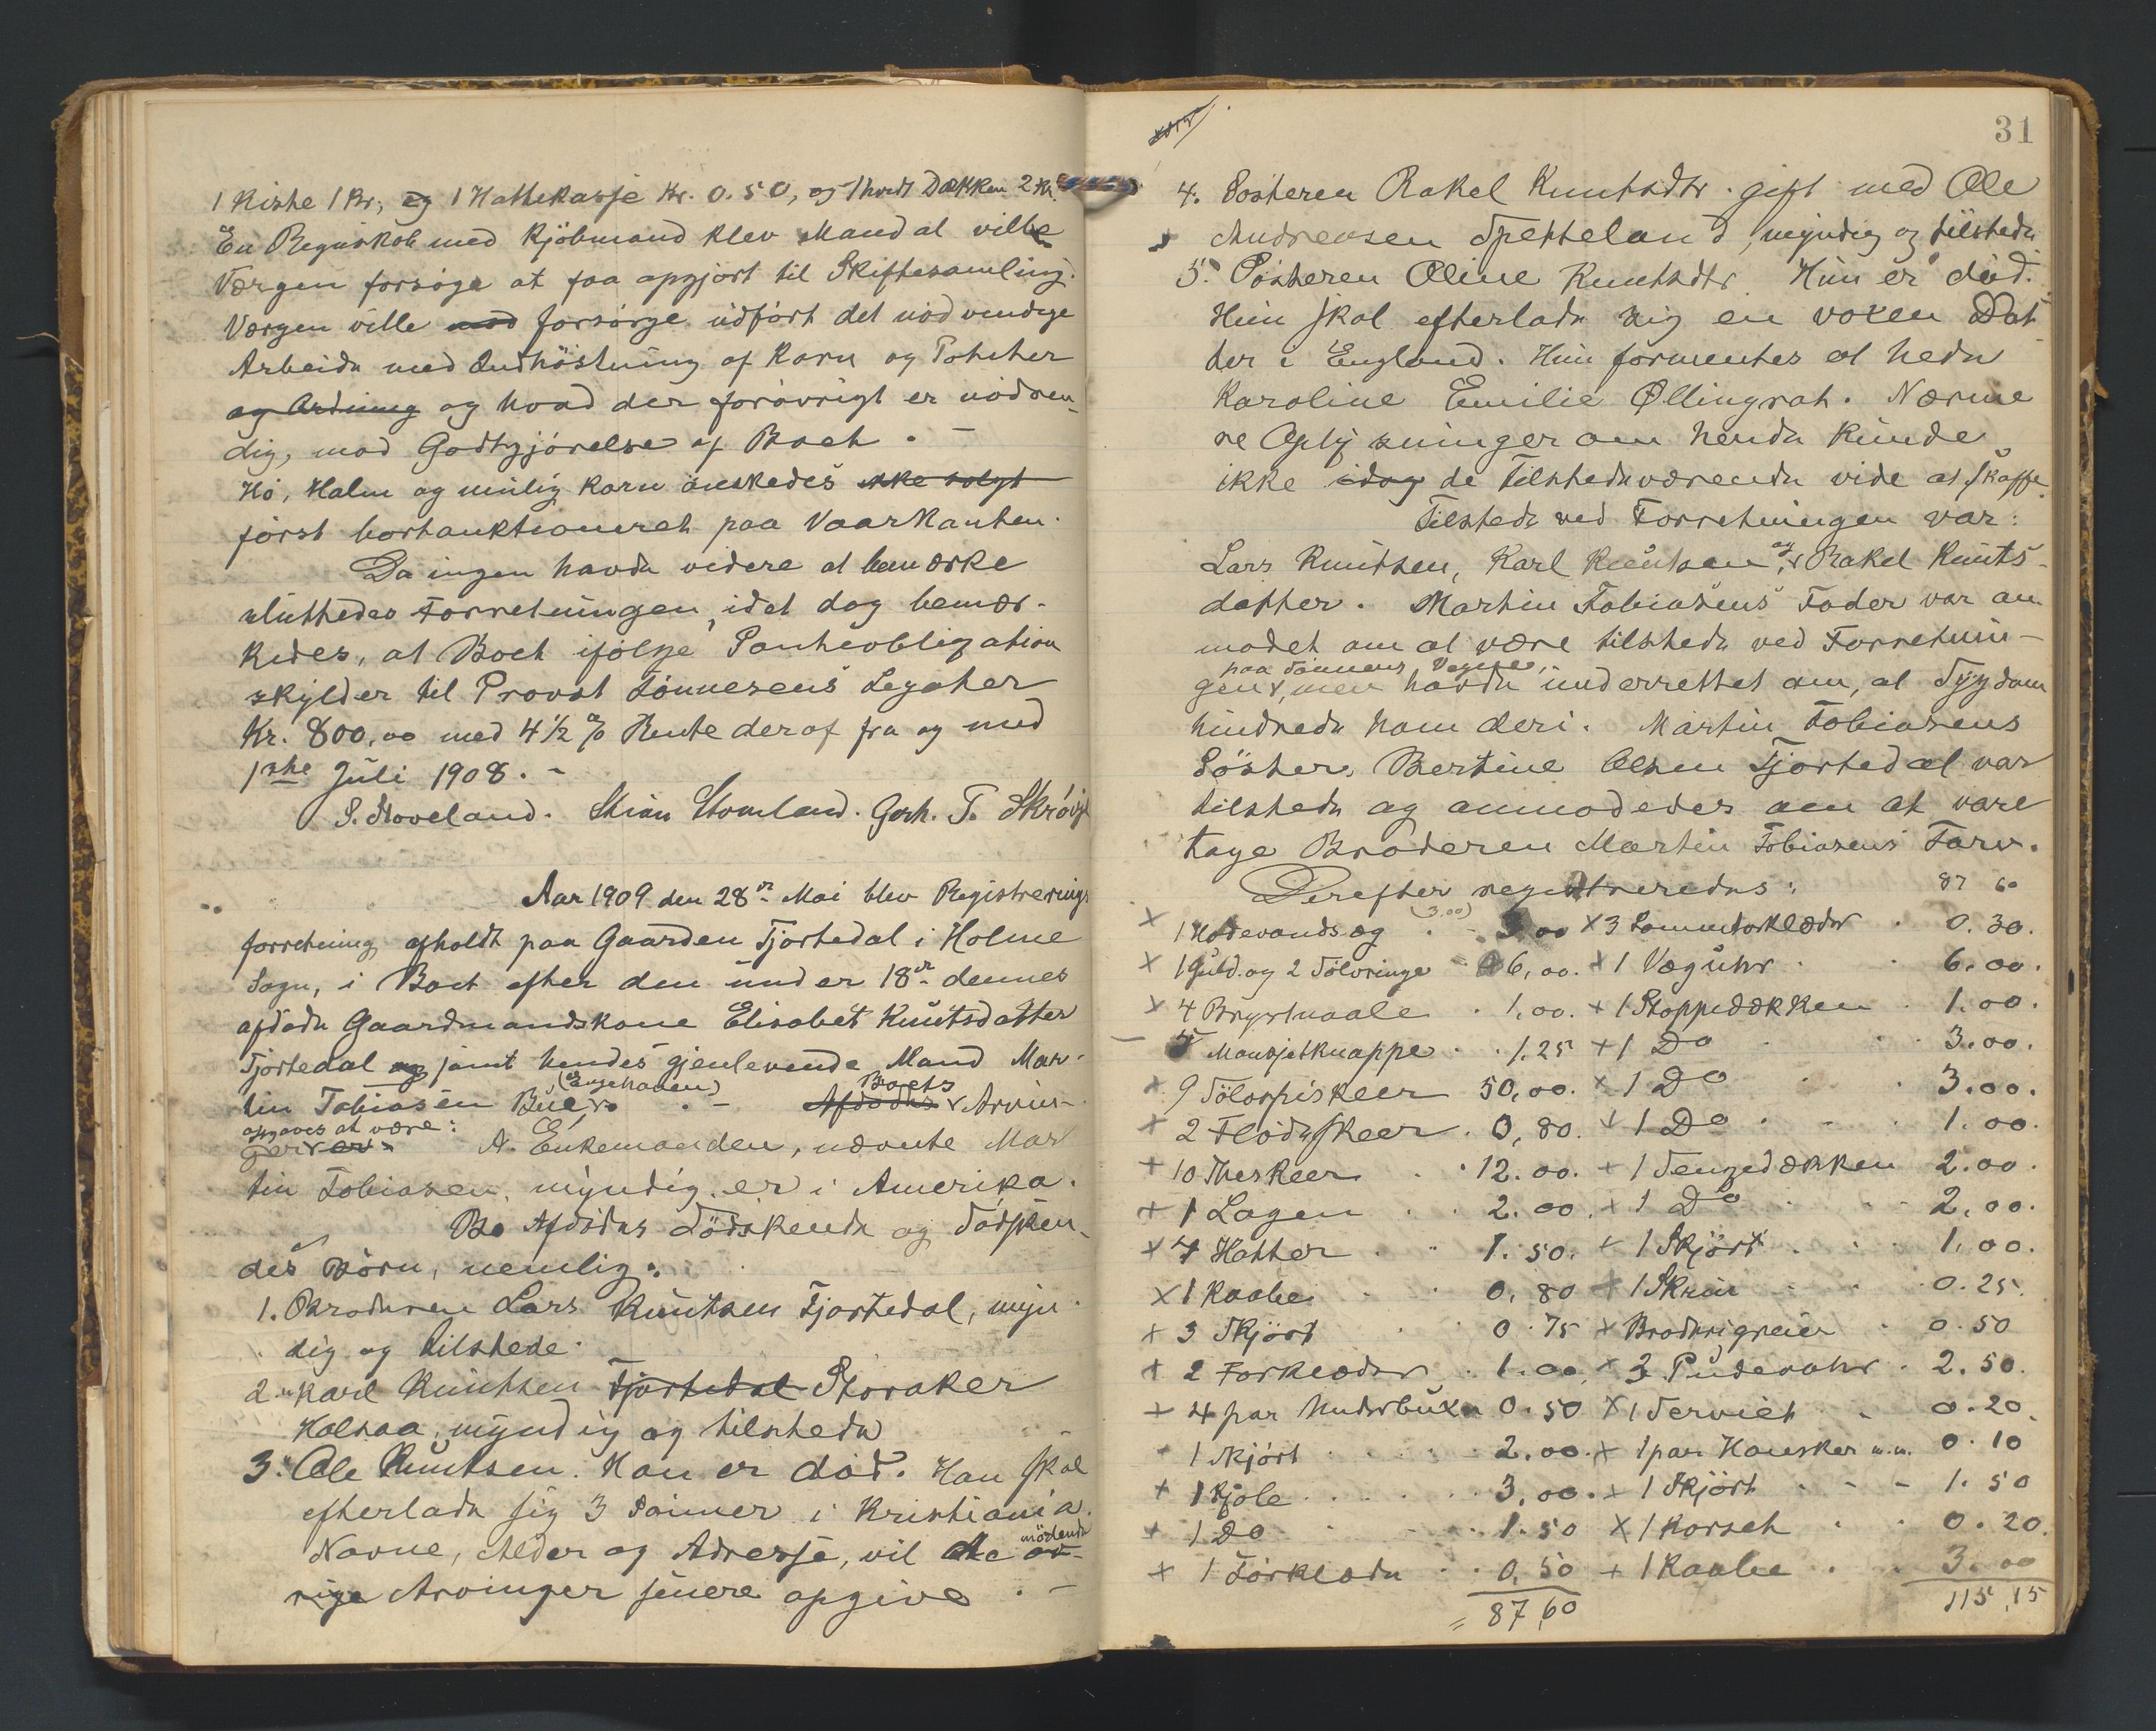 1 Kiste 1 Kr., og 1 Hattekasse Kr. 0.50, og 1 hvidt Dækken 2 Kr.
En Regnskab med Kjøbmand Klev Mandal vilde
Værgen forsøge at faa opgjort til Skiftesamling.
Værgen vilde forsørge udført det nødvendige
Arbeide med Indhøstning af Korn og Poteter
og Ordning og hvad der forøvrigt er nødven-
dig, mod Godtgjørelse af Boet. -
Hø, Halm og mulig Korn ønskedes ikke solgt
først bortauktioneret paa Vaarkanten.
Da ingen havde videre at bemærke
sluttedes Forretningen, idet dog bemær-
kedes, at Boet ifølge Panteobligation
skylder til Provst Tönnesens Legater
Kr. 800,00 med 4 1/2 % Rente deraf fra og med
1ste Juli 1908. -
S. Hoveland. Stian Stomland. Gerh. T. Skrövje
Aar 1909 den 28de Mai blev Registrerings
forretning afholdt paa Gaarden Tjortedal i Holme
Sogn, i Boet efter den under 18de dennes
afdøde Gaardmandskone Elisabet Knutsdatter
Tjortedal og samt hendes gjenlevende Mand Mar-
(Engehaven) Boets
tin Tobiasen Bue, . - Afdødes Arvin-
opgaves at være:
ger er: A. Enkemanden, nævnte Mar
tin Tobiasen, myndig er i Amerika.
B. Afdødes Södskende og Södsken-
des Børn, nemlig:
1. Broderen Lars Knutsen Tjortedal, myn-
dig og tilstede.
2. Karl Knutsen Tjortedal Storaker
Holsaa, myndig og tilstede
3. Ole Knutsen. Han er död. Han skal
efterlade sig 3 Sönner i Kristiania.
mødende
Navne, Alder og Adresse, vil de øv-
rige Arvinger senere opgive . -
31
4. Søsteren Rakel Knutsdtr. gift med Ole
Andreasen Spetteland, myndig og tilstede
5. Søsteren Oline Knutsdtr. Hun er död.
Hun skal efterlade sig en voxen Dat-
ter i England. Hun formentes at hede
Karoline Emilie Øllingrat. Nærme
re Oplysninger om hende kunde
ikke idag de Tilstedeværende vide at skaffe.
Tilstede ved Forretningen var:
Lars Knutsen, Karl Knutsen, og Rakel Knuts-
datter. Martin Tobiasens Fader var an
modet om at være tilstede ved Forretnin-
paa Sönnens Vegne,
gen, men havde underrettet om, at Sygdom
hindrede ham deri. Martin Tobiasens
Söster, Bertine Olsen Tjortedal var
tilstede og anmodedes om at vare
tage Broderen Martin Tobiasens Tarv.
Derefter registreredes: 87 60
(3.00)
× 1 Hovedvandsæg . - 3.00 × 3 Sommertørklæder . 0.30.
× 1 Guld. og 2 Sölvringe 6,00. + 1 Væguhr . . 6.00.
× 4 Brystnaale . 1,00. + 1 Stoppedækken . 1.00.
- Mansjetknappe . . 1.25 + 1 Do . . 3.00.
× 9 Sölvspiskeer 50,00. × 1 Do . . 3.00.
+ 2 Flödeskeer . 0,80. + 1 Do . . . 1.00.
+ 10 Theskeer . . 12.00. + 1 Sengedækken 2.00.
+ 1 Lagen . . 2.00. + 1 Do . . - 2,00.
+ 4 Hatter . . 1.50. + 1 Skjört . . . 1,00.
× 1 Kaabe . . 0,80 + 1 Skrin . . . 0.25.
+ 3 Skjört . . 0.75 × Broderigreier . 0.50
+ 2 Forklæder . 1.00, × 3 Pudevahr . 2.50.
+ 4 par Underbuxe 0.50 × 1 Serviet . . 0.20.
+ 1 Skjört . . . 2.00. × 1 par Hansker m.m. 0.10
+ 1 Kjole . . . . 3,00. × 1 Skjört . . - 1.50
+ 1 Do . . . 1.50 × 1 Korset . . 0.20.
+ 1 Törklæde . . 0,50 + 1 Kaabe . . 3.00
= 87,60 115,15